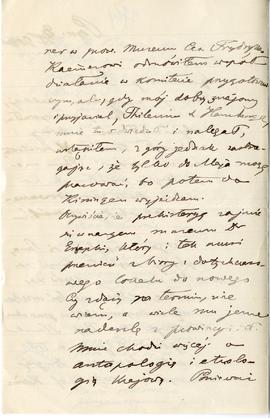 ner w prow. Museum Ces. Fryderyka
odmówiłem współ
działanie w Komitecie przygotow
czym, a gdy mój dobry znajomy
i przyjaciel, Thilenius z Hamburga
mnie tu odwiedził i nalegał,
ustąpiłem, z góry jednak zastrze
gając, że tylko do Maja mogę
pracować, bo potem do
wyjeżdżam.
Oczywiście, że prehistoryą zajmie
się museum Dr
Erzepki, który i tak musi
przenieść zbiory z dotychczaso
wego lokalu do nowego
Czy zdąży na termin, nie
wiem, a wiele mu jeszcze
nadeszlą z prowincyi. –
Mnie chodzi więcej o
antropologię i etnolo
gię krajową. Ponieważ